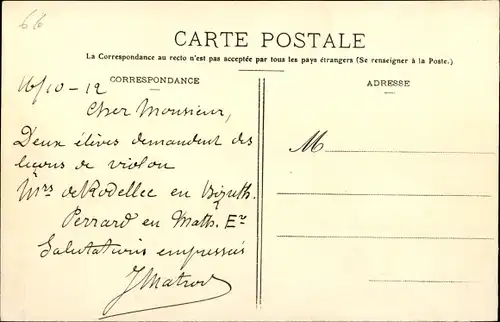 66
CARTE POSTALE
La Correspondance au recto n'est pas acceptée par tous les pays étrangers (Se renseigner à la Poste.)
CORRESPONDANCE
ADRESSE
16/10-12
Cher Monsieur,
Deux élèves demandent des
leçons de violon
Mrs de Rodellec en
Perrard en Math. Er
Salutations empressées
M